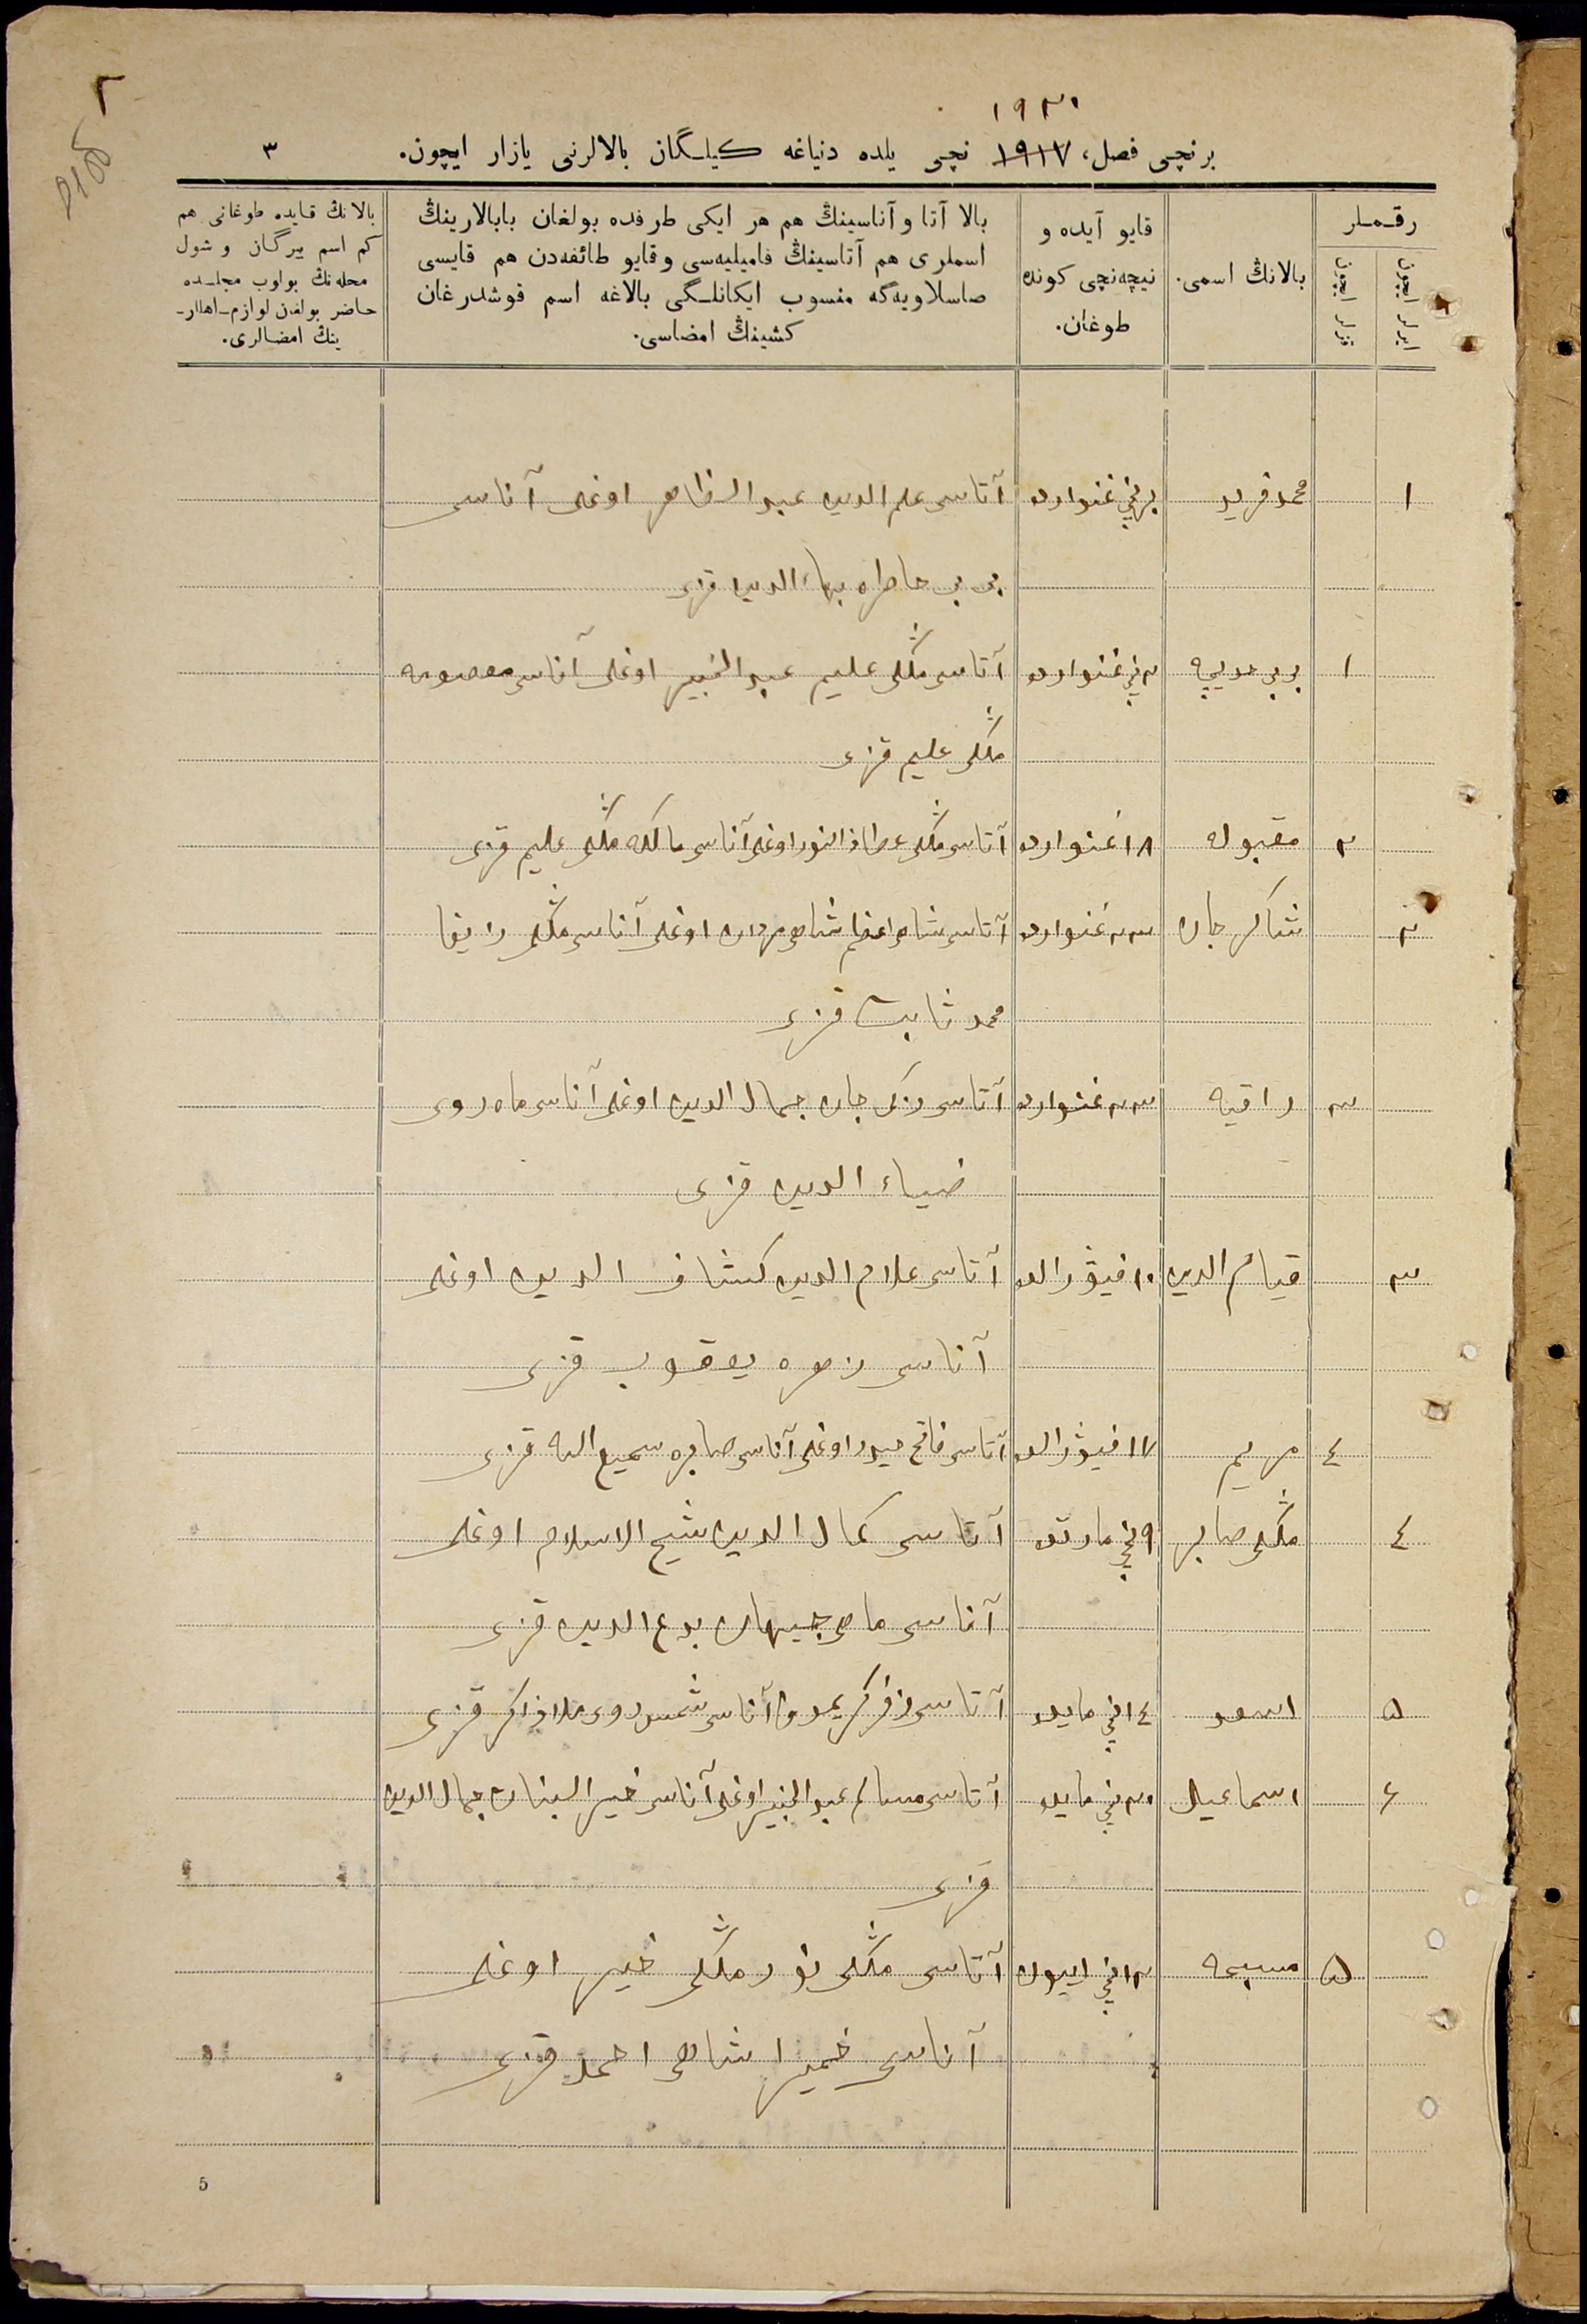 ١٩٢١
برنچی فصل، ١٩١٧ نچی یلده دنیاغه کیلـگان بالالرنی یازار ایچون. ٣
رقـمـلر
ایرلر ایچون
قزلر ایچون
بالانڭ اسمی.
قایو آیده و
نیچه‌نچی کونده
طوغان.
بالا آتا و آناسینڭ هم هر ایکی طرفده بولغان بابالارینڭ
اسملری هم آتاسینڭ فامیلیه‌سی و قایو طائفه‌دن هم قایسی
صاسلاویه‌گه منسوب ایکانلـگی بالاغه اسم قوشدرغان
کشینڭ امضاسی.
بالانڭ قایده طوغانی هم
کم اسم بیرگان و شول
محله‌نڭ بولوب مجلـده
حاضر بولغان لوازم ـ اهلار ـ
ینڭ امضالری.
١ محمد فرید برنچی غنوارده آتاسی علم الدین عبد الظاهر اوغلی آناسی
بی بی حاطره بهاء الدین قزی
١ بی بی حدیچه ٢ نچی غنوارده آتاسی مڭلی علیم عبد الخبیر اوغلی آناسی معصومه
مڭلی علیم قزی
٢ مقبوله ١٨ غنوارده آتاسی مڭلی عطا ذالنور اوغلی آناسی مالکه مڭلی علیم قزی
٢ شاکر جان ٢٣ غنوارده آتاسی شاه اعظم شاهی مردان اوغلی آناسی مڭلی رایفا
محمد ثابت قزی
٣ راقیه ٢٣ غنوارده آتاسی زکی جان جمال الدین اوغلی آناسی ماه روی
ضیاء الدین قزی
٣ قیام الدین ١٠ فیۋرالده آتاسی علام الدین کشاف الدین اوغلی
آناسی زهره یعقوب قزی
٤ مریم ١٧ فیۋرالده آتاسی فاتح حیدر اوغلی آناسی صابره سمیع الله قزی
٤ مڭلی صابر ٩ نچی مارتده آتاسی کمال الدین شیخ الاسلام اوغلی
آناسی ماهی جیهان بدع الدین قزی
٥ اسعد ١٤ نچی مایده آتاسی آناسی شمس روی ملا ذاکر قزی
٦ اسماعیل ٢٠ نچی مایده آتاسی مسالم عبد الخبیر اوغلی آناسی خیر البنات جمال الدین
قزی
٥ مسبحه ١٢ نچی ایون آتاسی مڭلی نور مڭلی خیر اوغلی
آناسی خمیرا شاهی احمد قزی
5